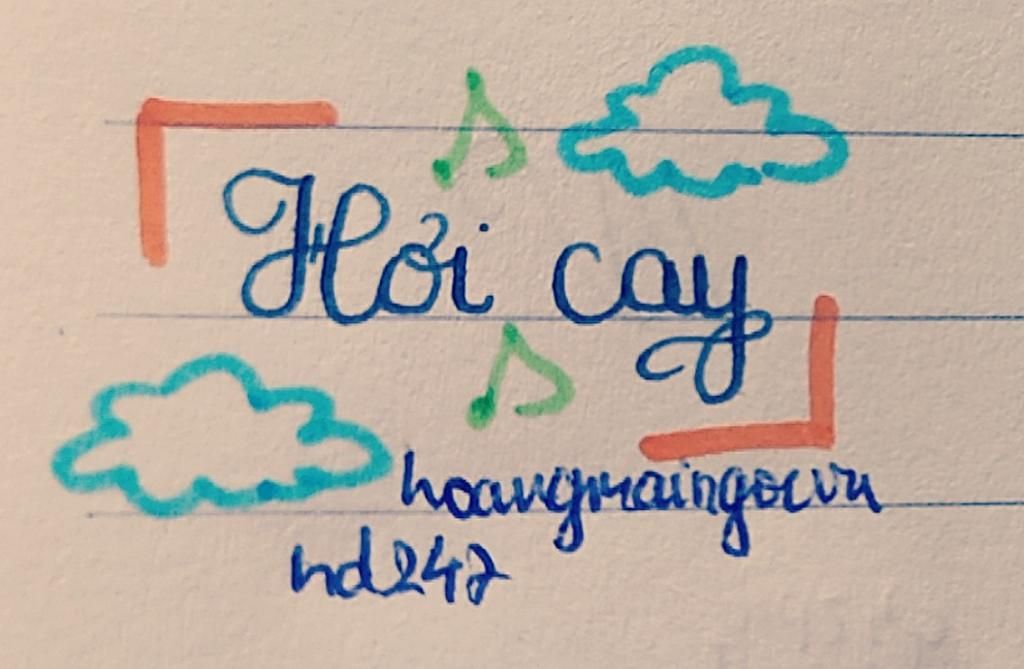 Hơi cay
hoangmaingocvn
nd247